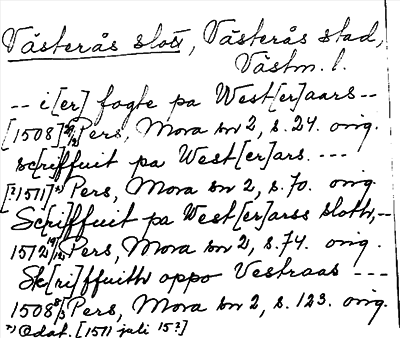 Västerås slott, Västerås stad,
Västm. l.
-- i[er] fogte pa West[er]aars --
[1508] Pers, Mora sn 2, s. 24. orig.
sc[ri]ffuit pa West[er]ars. ---
[?1511]*) Pers, Mora sn 2, s. 70. orig.
Sc[ri]ffuit pa West[er]arss sloth, --
1512 19/12 Pers, Mora sn 2, s. 74. orig.
Sk[ri]ffuith oppo Vestraas ---
1508 8/3 Pers, Mora sn 2, s. 123. orig.
*) Odat. [1511 juli 15?]